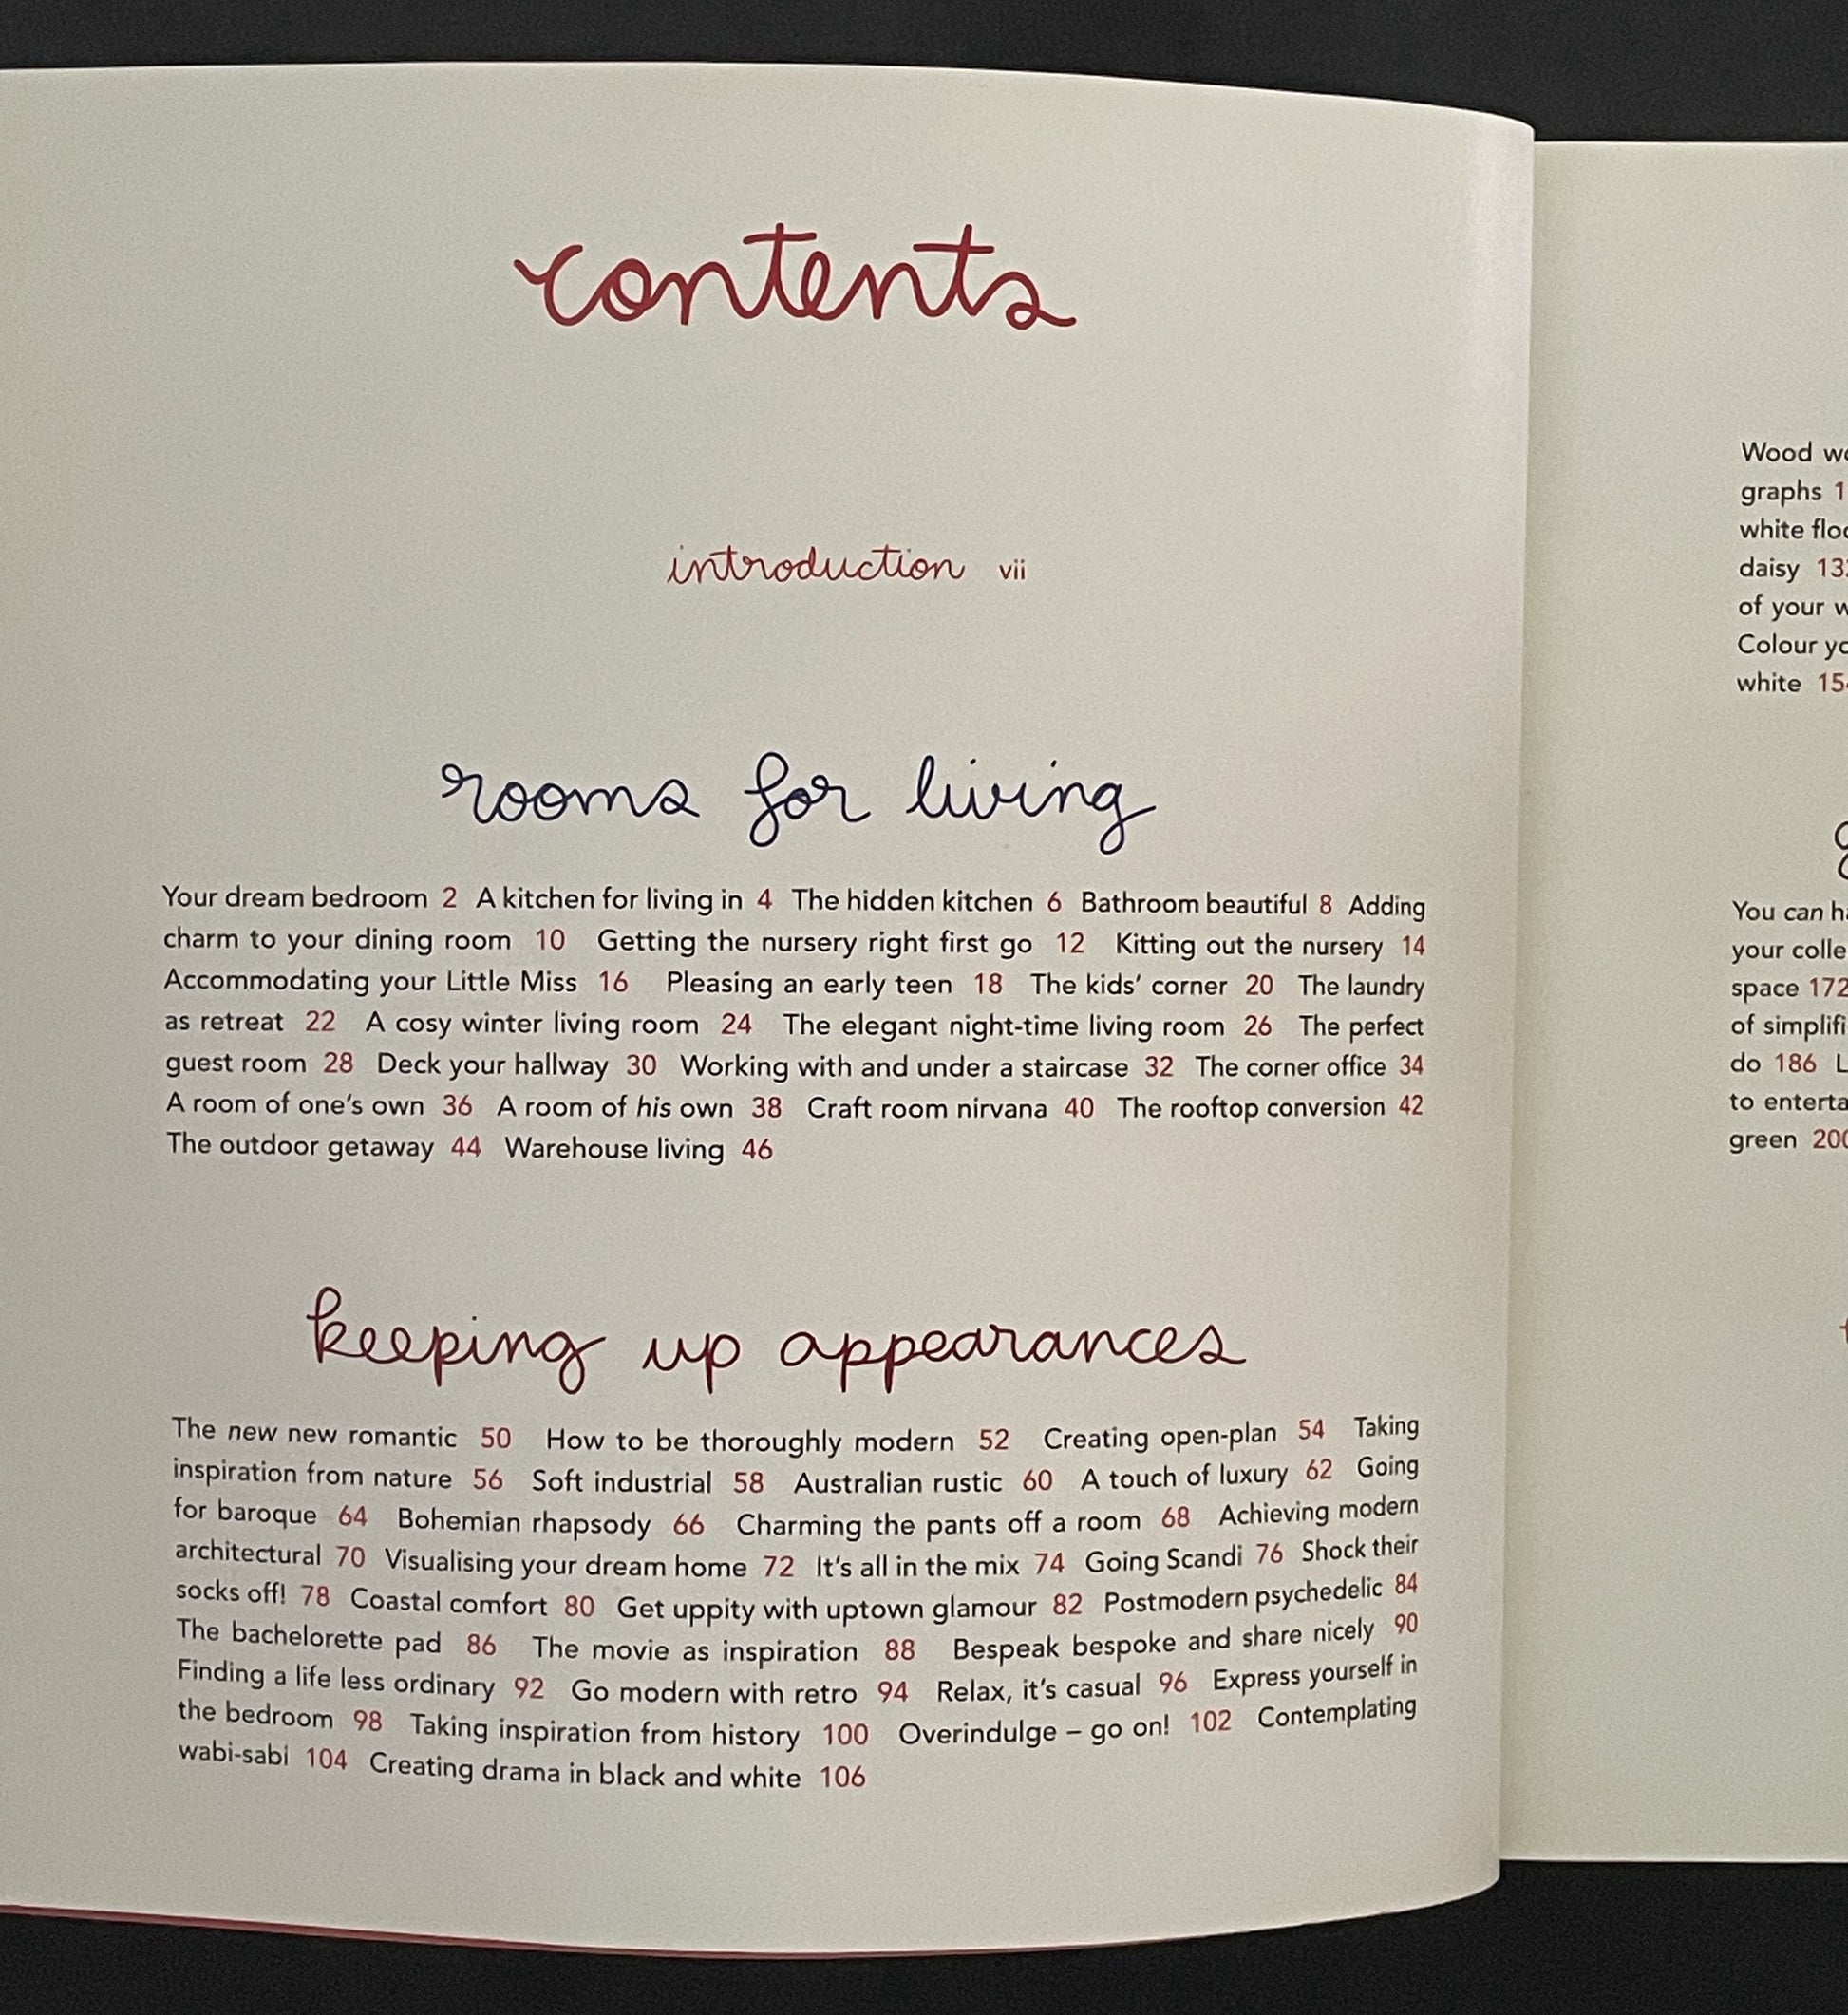 contents
introduction vii
rooms for living
Your dream bedroom 2 A kitchen for living in 4 The hidden kitchen 6 Bathroom beautiful 8 Adding
charm to your dining room 10 Getting the nursery right first go 12 Kitting out the nursery 14
Accommodating your Little Miss 16 Pleasing an early teen 18 The kids’ corner 20 The laundry
as retreat 22 A cosy winter living room 24 The elegant night-time living room 26 The perfect
guest room 28 Deck your hallway 30 Working with and under a staircase 32 The corner office 34
A room of one’s own 36 A room of his own 38 Craft room nirvana 40 The rooftop conversion 42
The outdoor getaway 44 Warehouse living 46
keeping up appearances
The new new romantic 50 How to be thoroughly modern 52 Creating open-plan 54 Taking
inspiration from nature 56 Soft industrial 58 Australian rustic 60 A touch of luxury 62 Going
for baroque 64 Bohemian rhapsody 66 Charming the pants off a room 68 Achieving modern
architectural 70 Visualising your dream home 72 It’s all in the mix 74 Going Scandi 76 Shock their
socks off! 78 Coastal comfort 80 Get uppity with uptown glamour 82 Postmodern psychedelic 84
The bachelorette pad 86 The movie as inspiration 88 Bespeak bespoke and share nicely 90
Finding a life less ordinary 92 Go modern with retro 94 Relax, it’s casual 96 Express yourself in
the bedroom 98 Taking inspiration from history 100 Overindulge – go on! 102 Contemplating
wabi-sabi 104 Creating drama in black and white 106
Wood
graphs
white
daisy
of your
Colour
white
You can
your
space 172
of
do 186
to
green